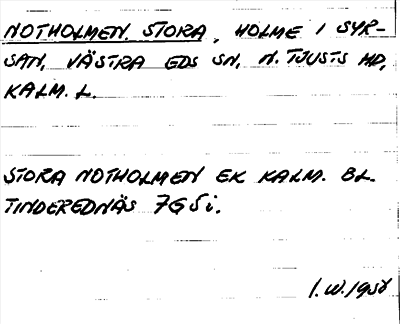 NOTHOLMEN, STORA, HOLME I SYR-
SAN, VÄSTRA EDS SN, N. TJUSTS HD,
KALM. L.
STORA NOTHOLMEN EK KALM. BL.
TINDEREDNÄS 7G5i.
I.W. 1958